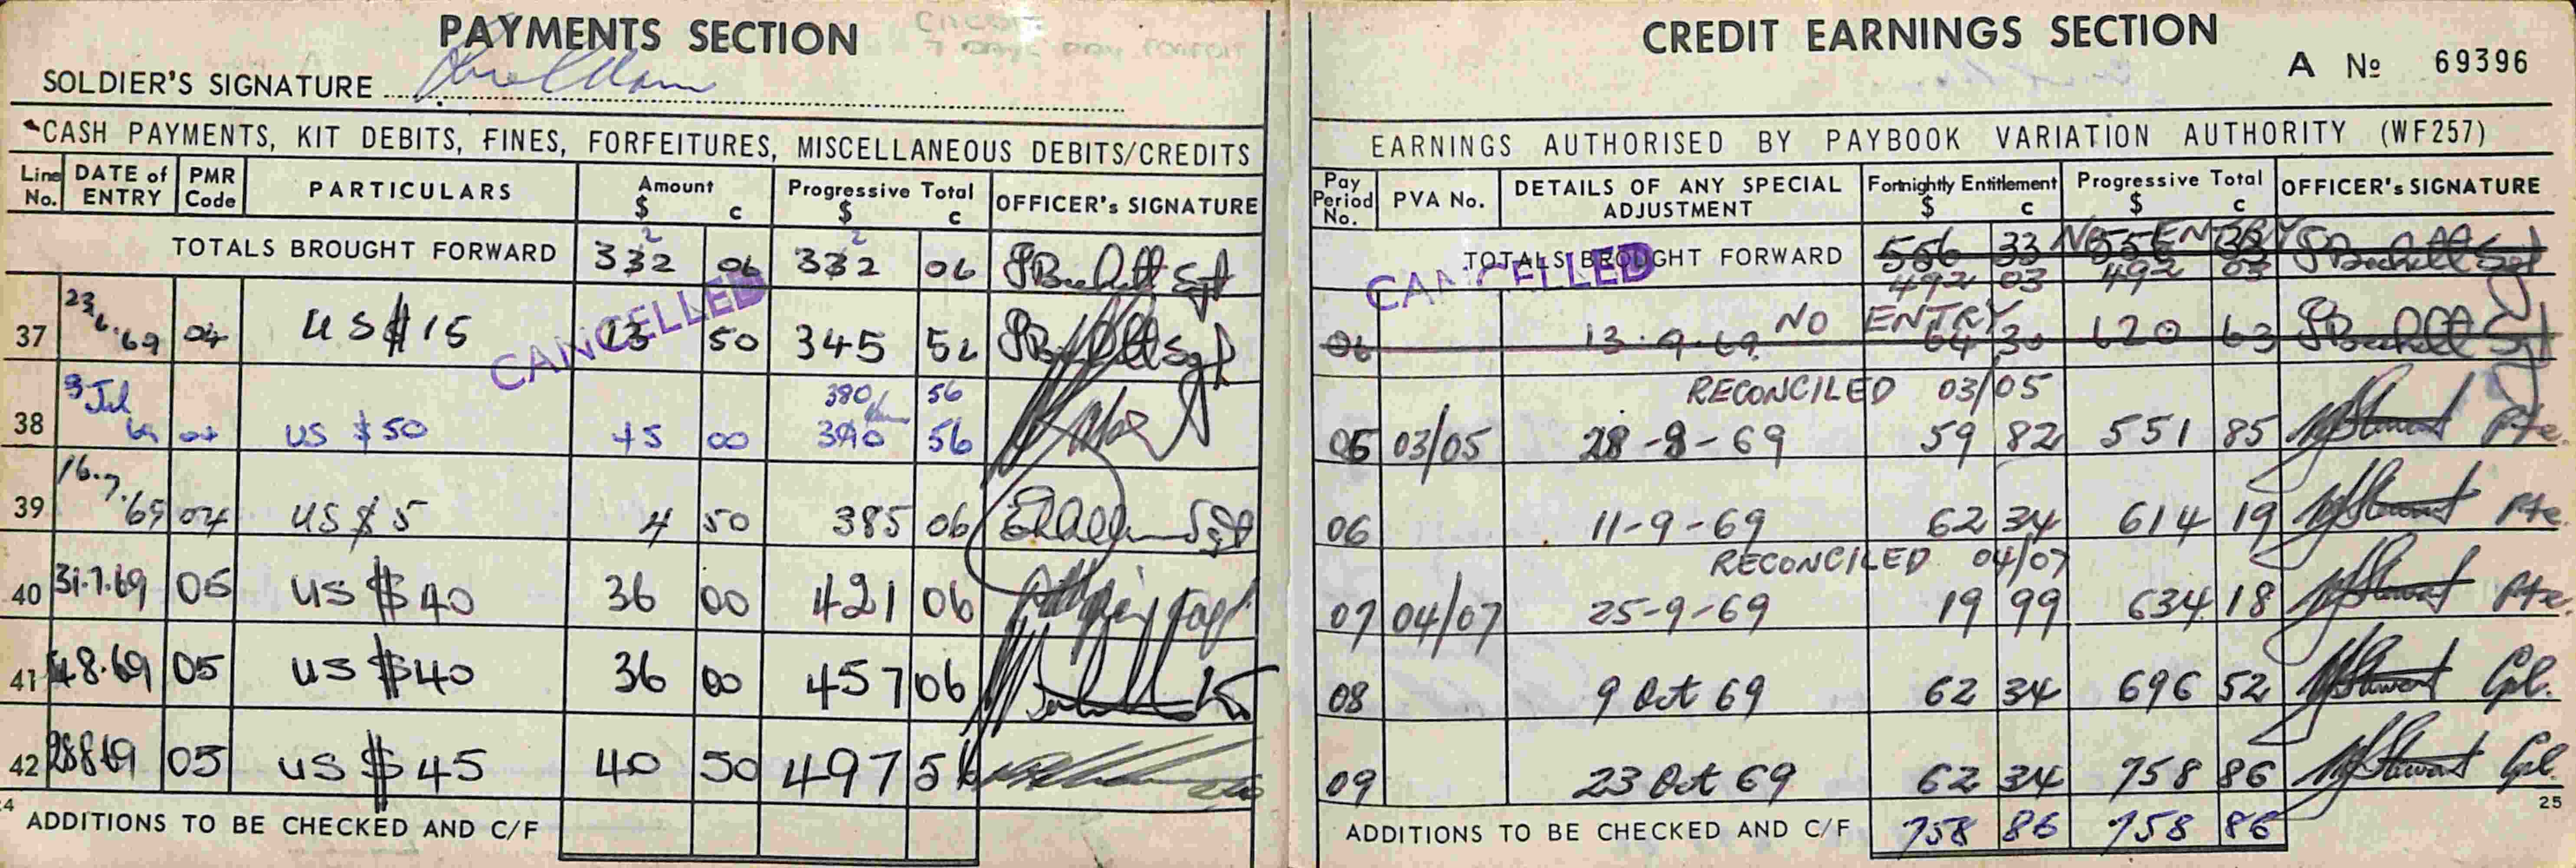 PAYMENTS SECTION
SOLDIER'S SIGNATURE
CASH PAYMENTS, KIT DEBITS, FINES, FORFEITURES, MISCELLANEOUS DEBITS/CREDITS
Line No. DATE of ENTRY PMR Code PARTICULARS Amount $ c Progressive Total $ c OFFICER's SIGNATURE
TOTALS BROUGHT FORWARD 332 06 332 06 Sgt
CANCELLED
37 23.6.69 04 US $15 13 50 345 Sgt
380 56
38 Jul 69 04 US $50 45 00 390 56
39 16.7.69 04 US $5 4 50 385 06 Sgt
40 31.7.69 05 US $40 36 00 421 06
41 8.69 05 US $40 36 00 457 06
42 28 8 69 05 US $45 40 50 497 56
24
ADDITIONS TO BE CHECKED AND C/F
CREDIT EARNINGS SECTION
A No 69396
EARNINGS AUTHORISED BY PAYBOOK VARIATION AUTHORITY (WF257)
Pay Period No. PVA No. DETAILS OF ANY SPECIAL ADJUSTMENT Fortnightly Entitlement $ c Progressive Total $ c OFFICER's SIGNATURE
NO ENTRY
TOTALS BROUGHT FORWARD 556 33 556 33 Sgt
492 03 492 03
CANCELLED
NO ENTRY
06 13.9.69 64 30 620 63 Sgt
RECONCILED 03/05
05 03/05 28-8-69 59 82 551 85 Pte.
06 11-9-69 62 34 614 19 Pte.
RECONCILED 04/07
07 04/07 25-9-69 19 99 634 18 Pte.
08 9 Oct 69 62 34 696 52 Cpl.
09 23 Oct 69 62 34 758 86 Cpl.
25
ADDITIONS TO BE CHECKED AND C/F 758 86 758 86